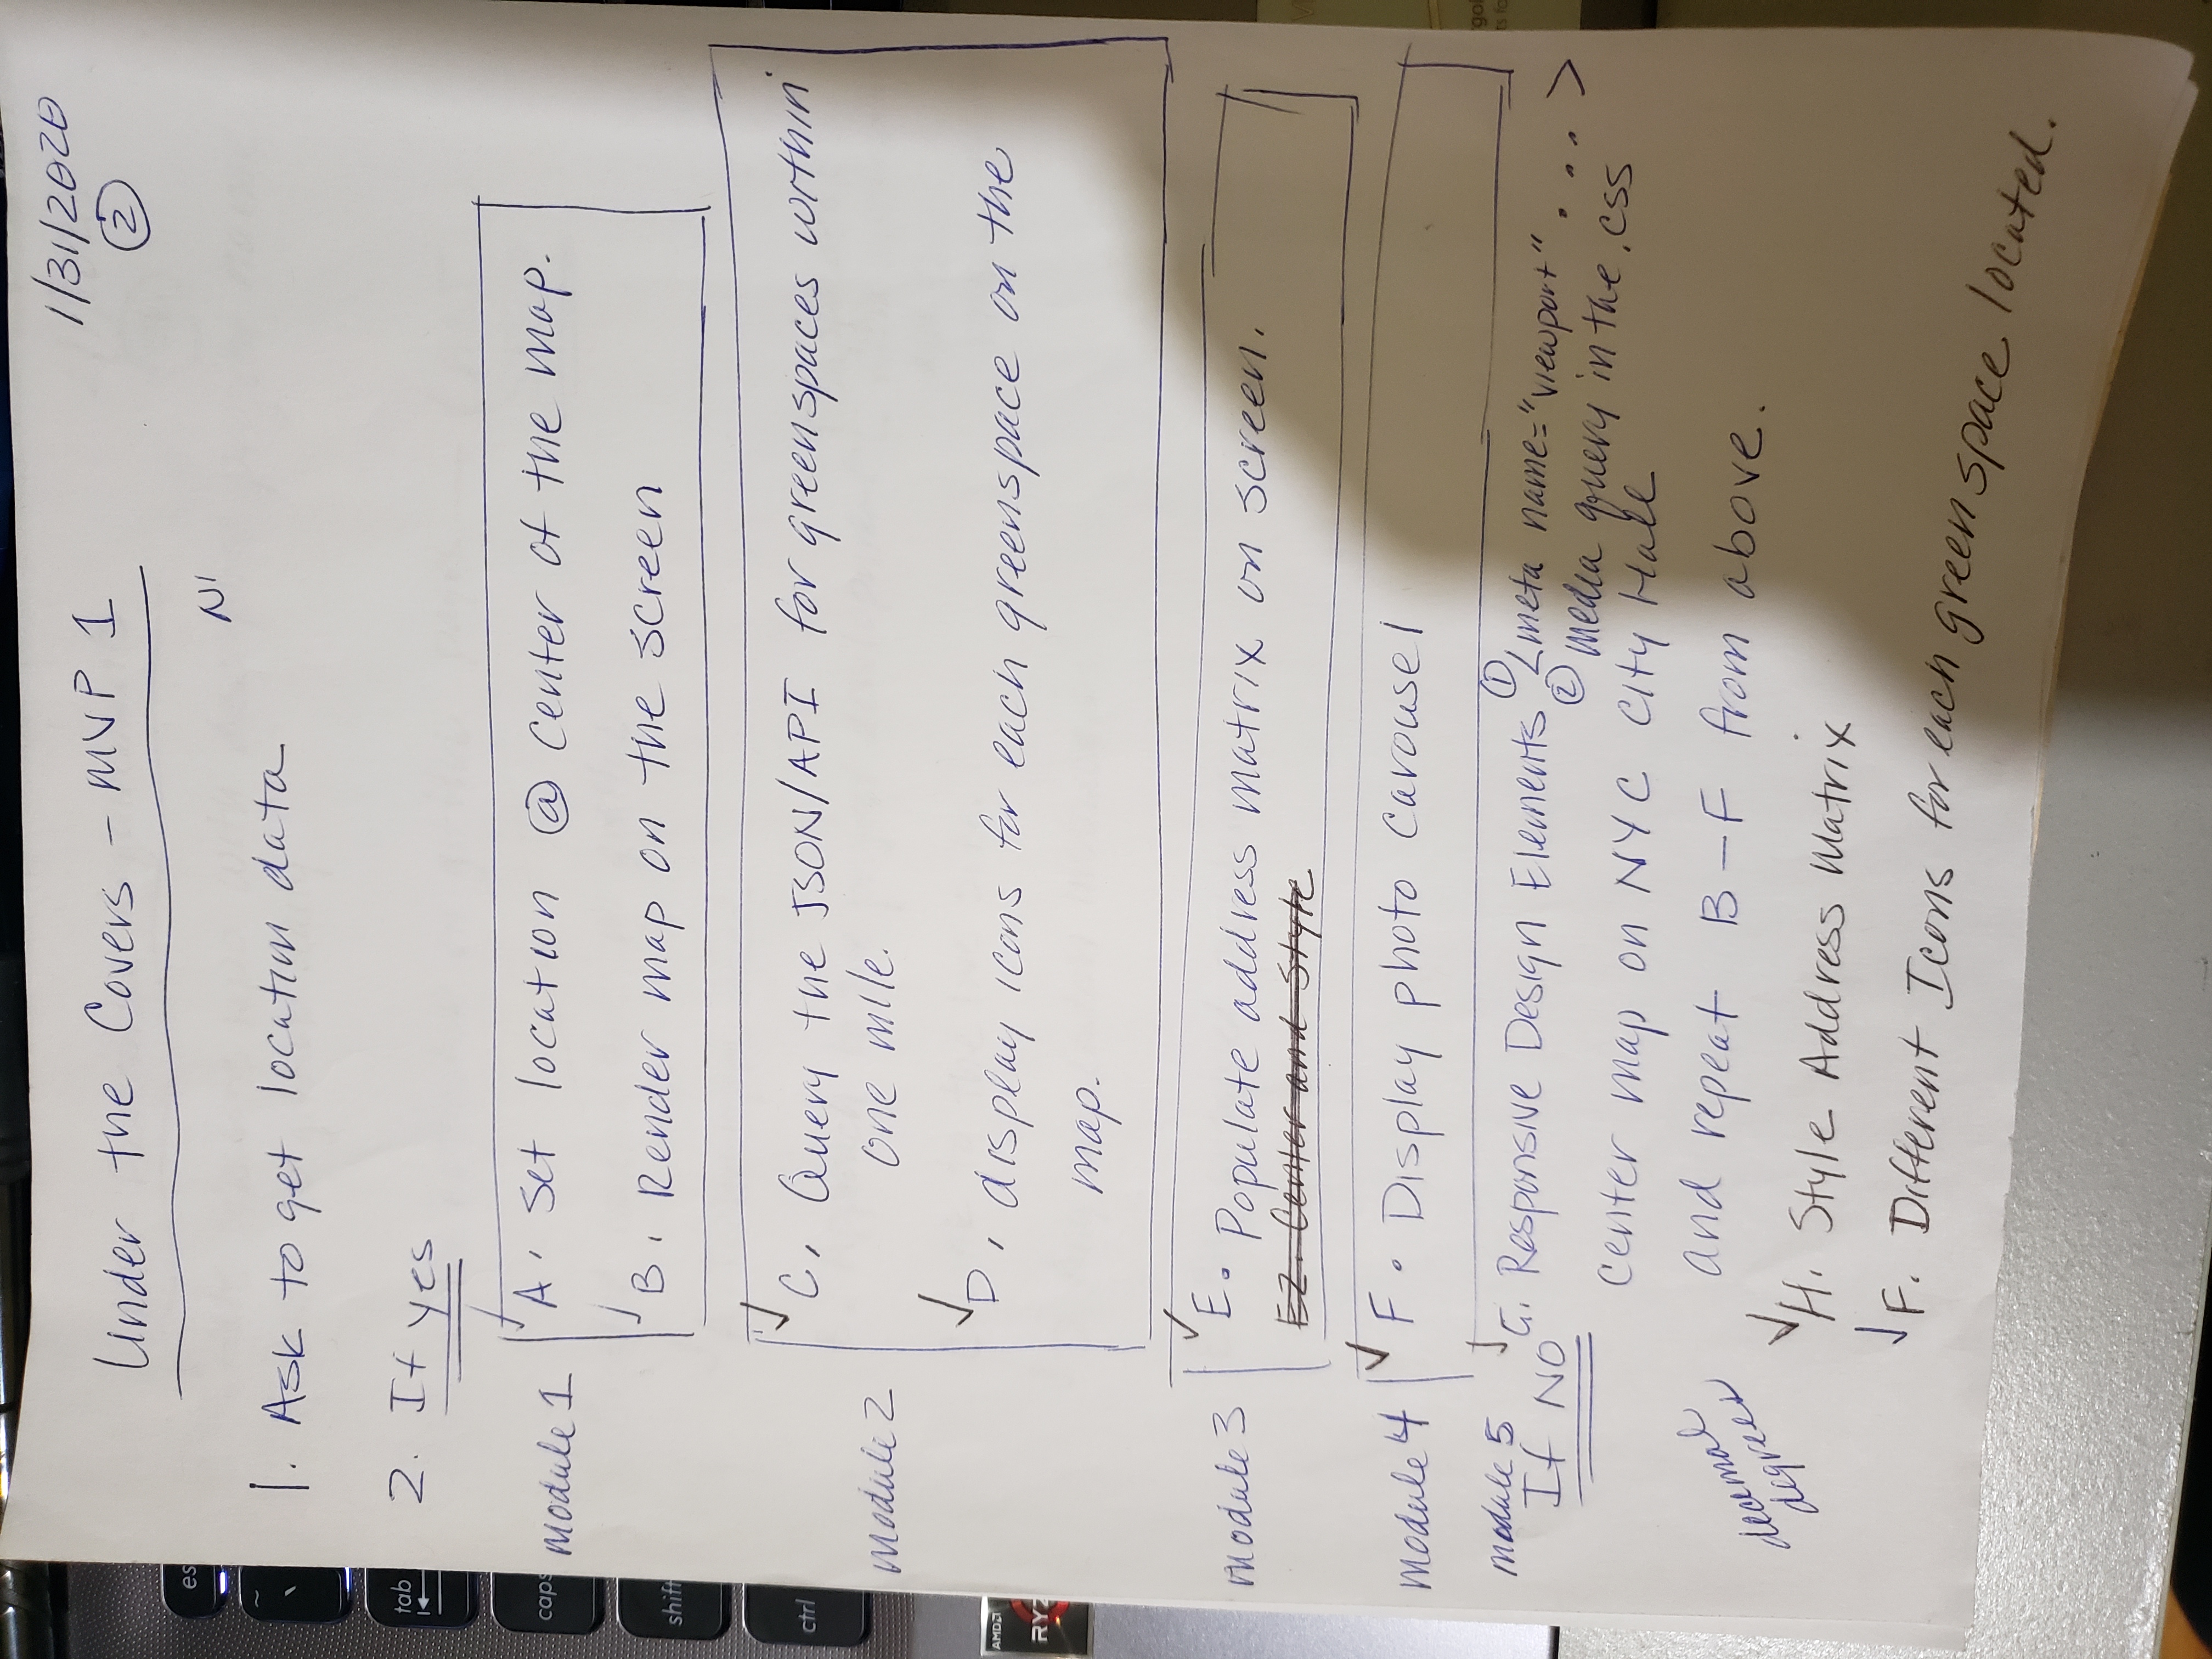 1/31/2020
2
Under the Covers - MVP 1
NI
1. Ask to get location data
2. If yes
Module 1
✓ A. Set location @ center of the map.
✓ B. Render map on the screen
Module 2
✓ C. Query the JSON/API for greenspaces within
one mile.
✓ D. display icons for each greenspace on the
map.
Module 3
✓ E. Populate address matrix on screen.
E2. Center and Style
Module 4
✓ F. Display photo carousel
Module 5
✓ G. Responsive Design Elements ① <meta name="viewport" . . . . >
② media query in the .css
If NO
center map on NYC City Hall
and repeat B-F from above.
decimal
degrees
✓ H. Style Address Matrix
✓ F. Different Icons for each green space located.
es
~
`
tab
caps
shift
ctrl
AMD
RYZ